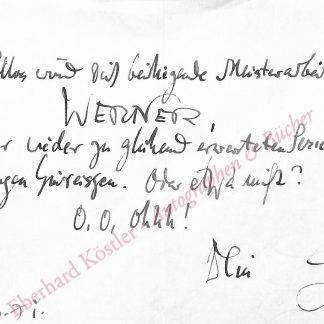 wird Dich beiliegende Meisterarbeit
WERNER,
wieder zu glühend erwarteten
Oder etwa nicht?
O, O, ohhh!
Dein
Eberhard Köstler Autographen & Bücher